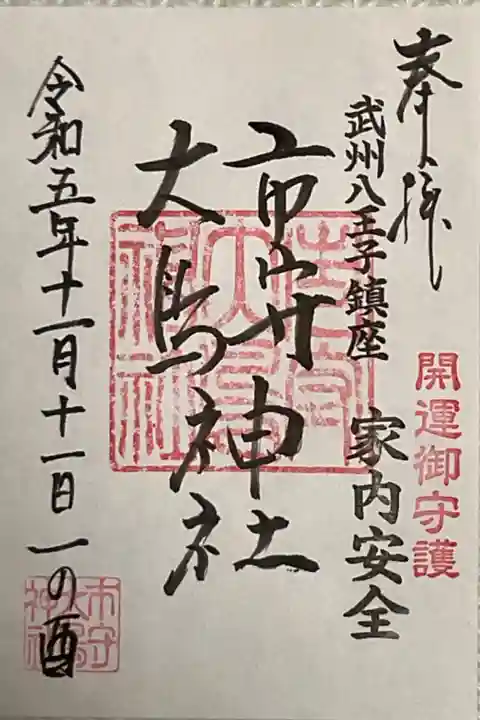 奉拝
武州八王子鎮座 家内安全
開運御守護
市守神社
大鳥神社
令和五年十一月十一日 一の酉
市守
大鳥
神社